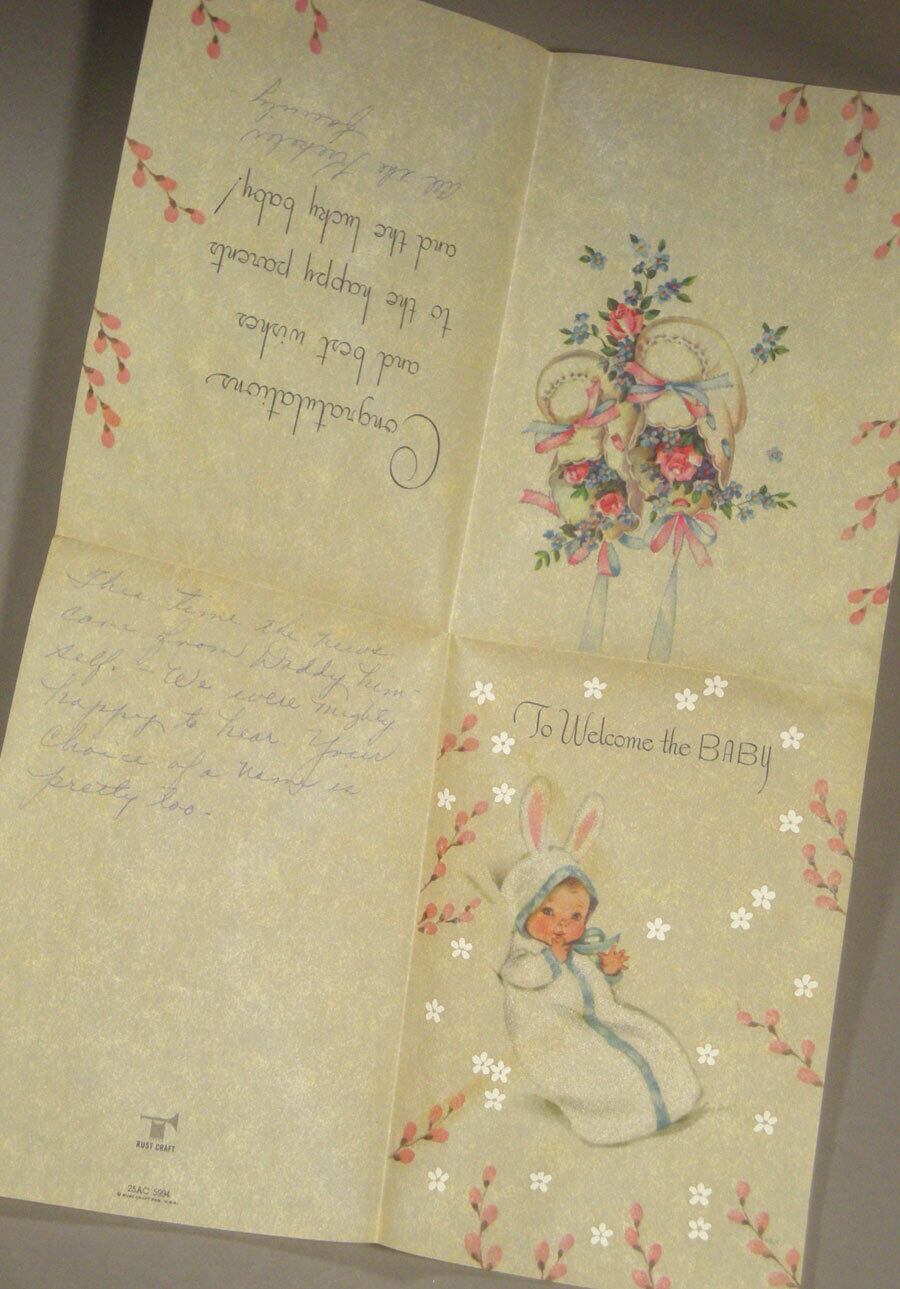 Congratulations
and best wishes
to the happy parents
and the lucky baby!
All the
family
This time the news
came from Daddy him-
self. - We were mighty
happy to hear. Your
choice of a name is
pretty too.
To Welcome the BABY
RUST CRAFT
25AC 5994